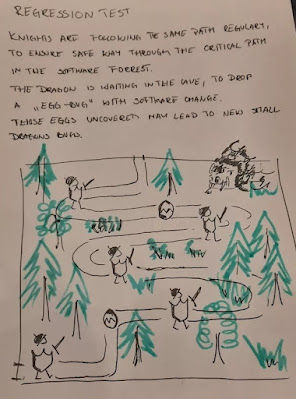 REGRESSION TEST
KNIGHTS ARE FOLLOWING THE SAME PATH REGULARY,
TO ENSURE SAFE WAY THROUGH THE CRITICAL PATH
IN THE SOFTWARE FORREST.
THE DRAGON IS WAITING IN THE CAVE, TO DROP
A „EGG-BUG" WITH SOFTWARE CHANGE.
THOSE EGGS UNCOVERED MAY LEAD TO NEW SMALL
DRAGONS BUGS.